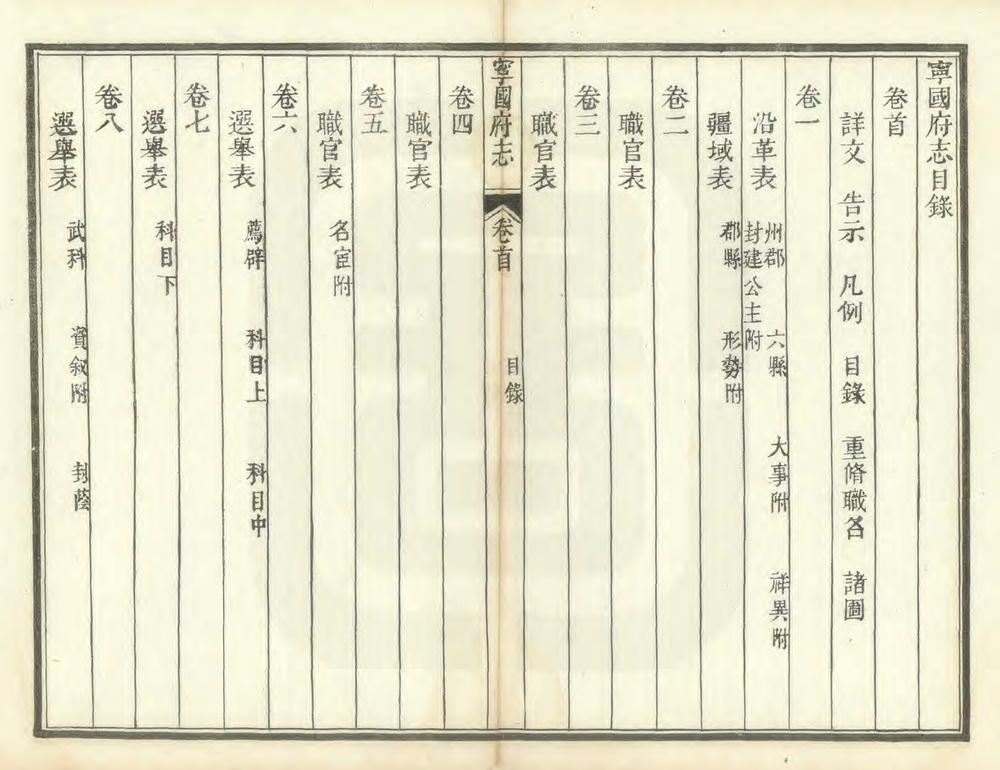 寧國府志目錄
卷首
詳文 告示 凡例 目錄 重脩職名 諸圖
卷一
沿革表 州郡 六縣 大事附 祥異附
封建公主附
疆域表 郡縣 形勢附
卷二
職官表
卷三
職官表
寧國府志 卷首 目錄
卷四
職官表
卷五
職官表 名宦附
卷六
選舉表 薦辟 科目上 科目中
卷七
選舉表 科目下
卷八
選舉表 武科 資敘附 封蔭